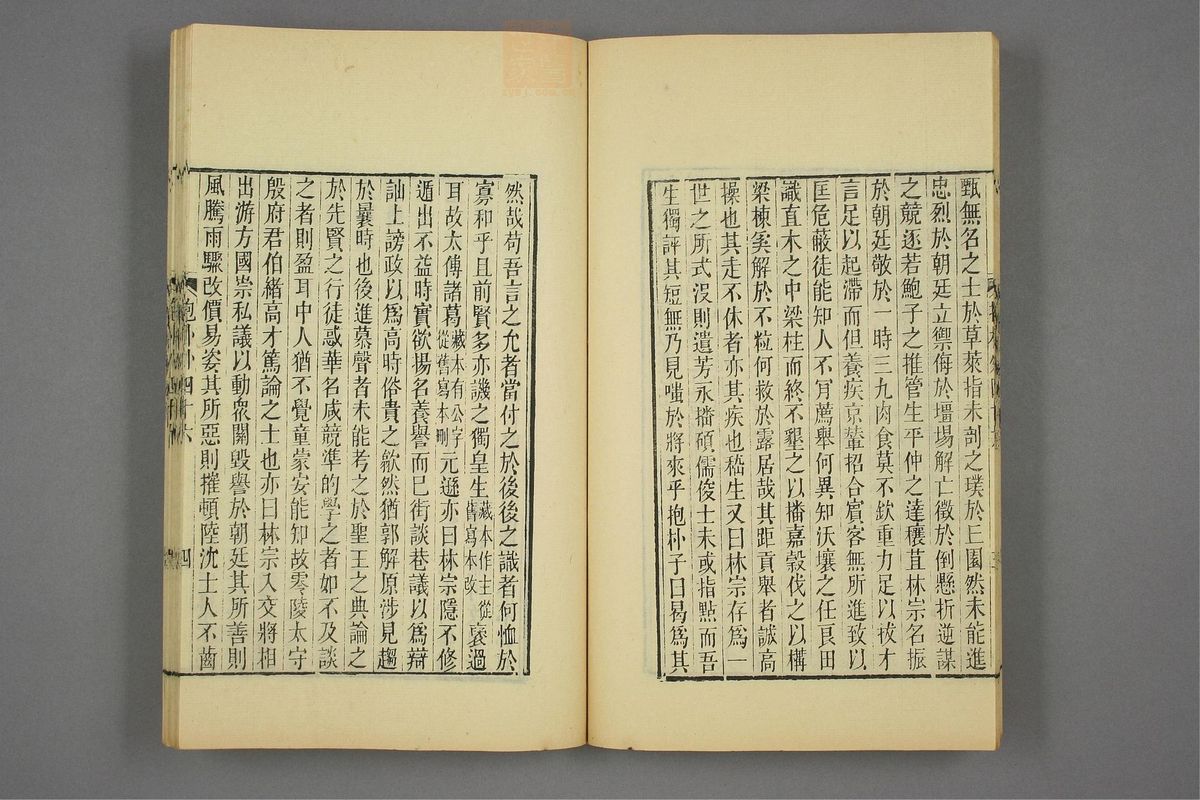 甄無名之士於草萊指未剖之璞於丘園然未能進
忠烈於朝廷立禦侮於壃場解亡徵於倒懸折逆謀
之競逐若鮑子之推管生平仲之達穰苴林宗名振
於朝廷敬於一時三九肉食莫不欽重力足以拔才
言足以起滯而但養疾京輦招合賓客無所進致以
匡危蔽徒能知人不肎薦舉何異知沃壤之任良田
識直木之中梁柱而終不墾之以播嘉穀伐之以構
梁棟奚解於不粒何救於露居哉其距貢舉者誠高
操也其走不休者亦其疾也嵇生又曰林宗存爲一
世之所式沒則遺芳永播碩儒俊士未或指點而吾
生獨評其短無乃見嗤於將來乎抱朴子曰曷爲其
然哉苟吾言之允者當付之於後後之識者何恤於
寡和乎且前賢多亦譏之獨皇生藏本作主從舊寫本改襃過
耳故太傅諸葛藏本有公字從舊寫本刪元遜亦曰林宗隱不修
遁出不益時實欲揚名養譽而已街談巷議以爲辯
訕上謗政以爲高時俗貴之歙然猶郭解原涉見趨
於曩時也後進慕聲者未能考之於聖王之典論之
於先賢之行徒惑華名咸競準的學之者如不及談
之者則盈耳中人猶不覺童蒙安能知故零陵太守
殷府君伯緒高才篤論之士也亦曰林宗入交將相
出游方國崇私議以動衆關毀譽於朝廷其所善則
風騰雨驟改價易姿其所惡則摧頓陸沈士人不齒
抱朴外四十六
四